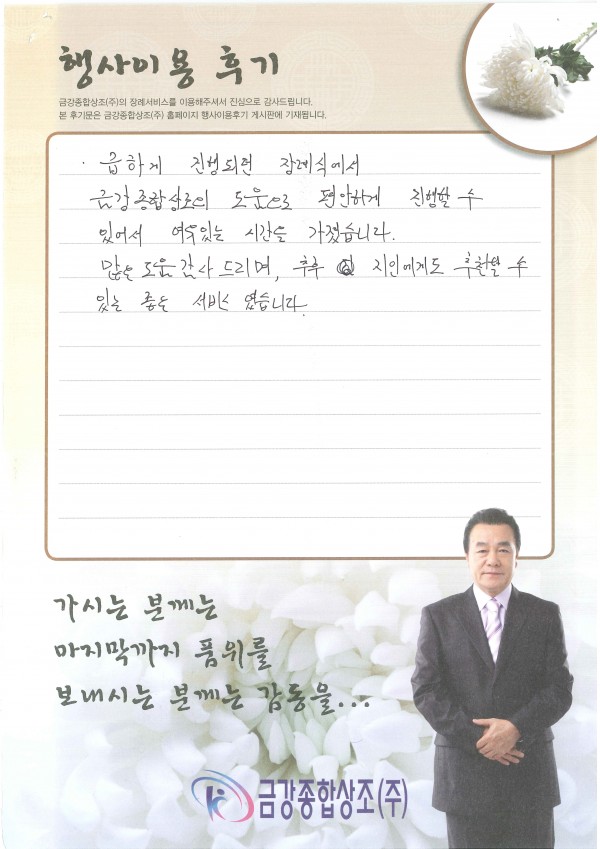 행사이용 후기
금강종합상조(주)의 장례서비스를 이용해주셔서 진심으로 감사드립니다.
본 후기문은 금강종합상조(주) 홈페이지 행사이용후기 게시판에 기재됩니다.
· 급하게 진행되면 장례식에서
금강종합상조의 도움으로 편안하게 진행할 수
있어서 여유있는 시간을 가졌습니다.
많은 도움 감사 드리며, 추후 지인에게도 추천할 수
있는 좋은 서비스 였습니다.
가시는 분께는
마지막까지 품위를
보내시는 분께는 감동을...
금강종합상조(주)